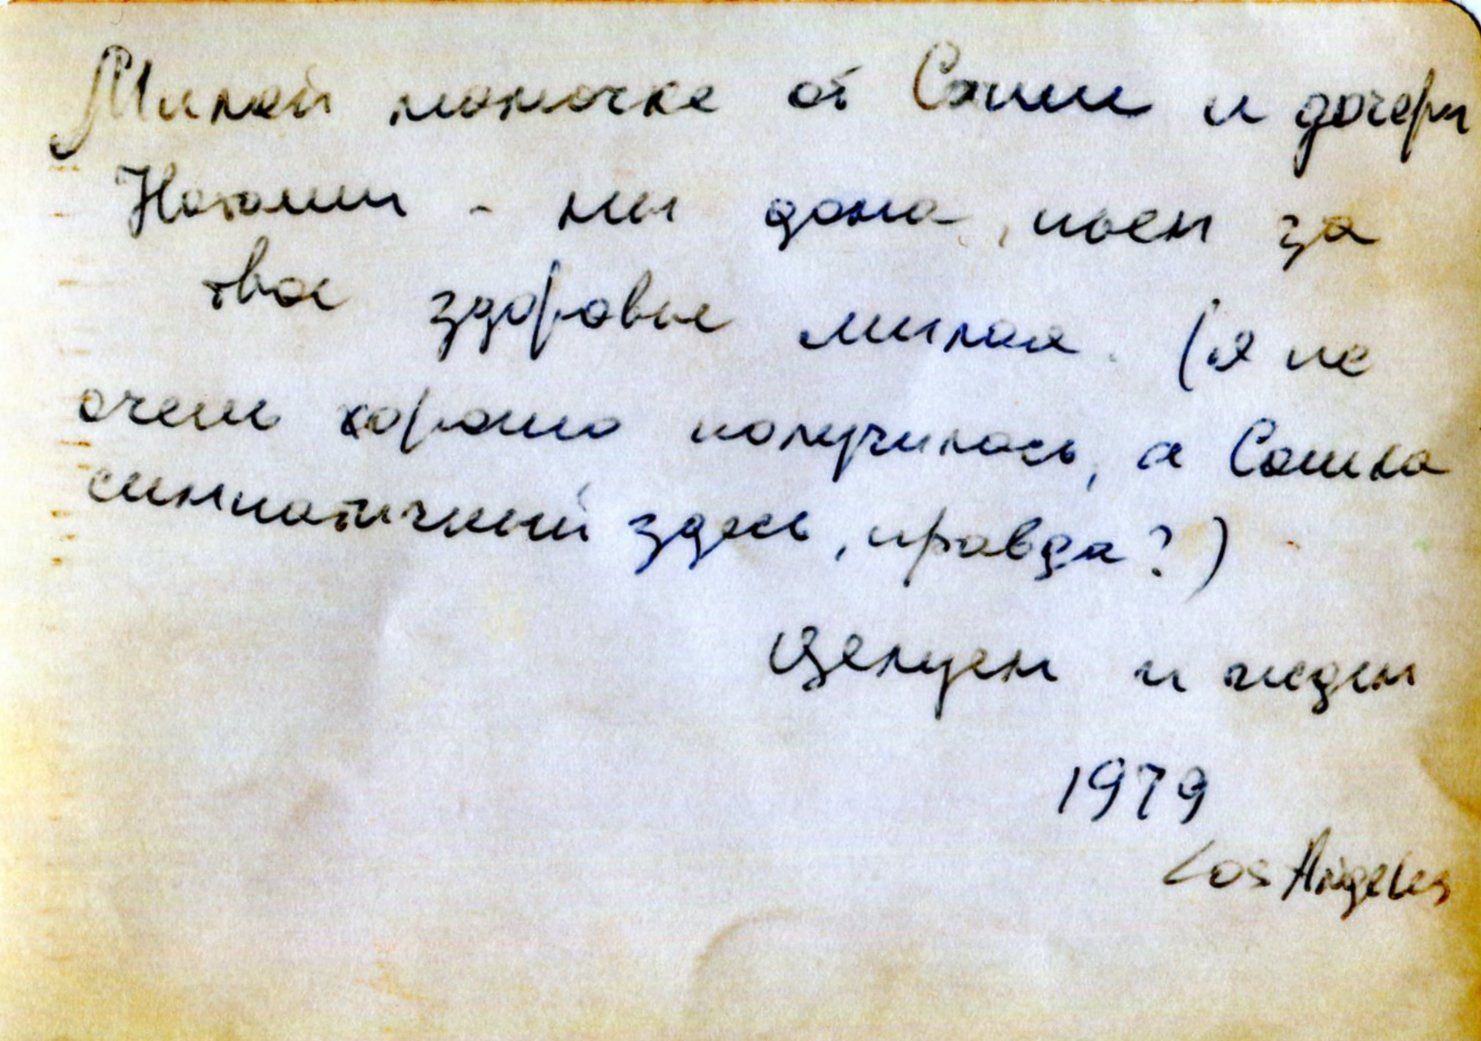 Милой мамочке от Саши и дочери
Наташи - мы дома, пьем за
твое здоровье милая. (я не
очень хорошо получилась, а Сашка
симпатичный здесь, правда?)
целуем и ждем
1979
Los Angeles